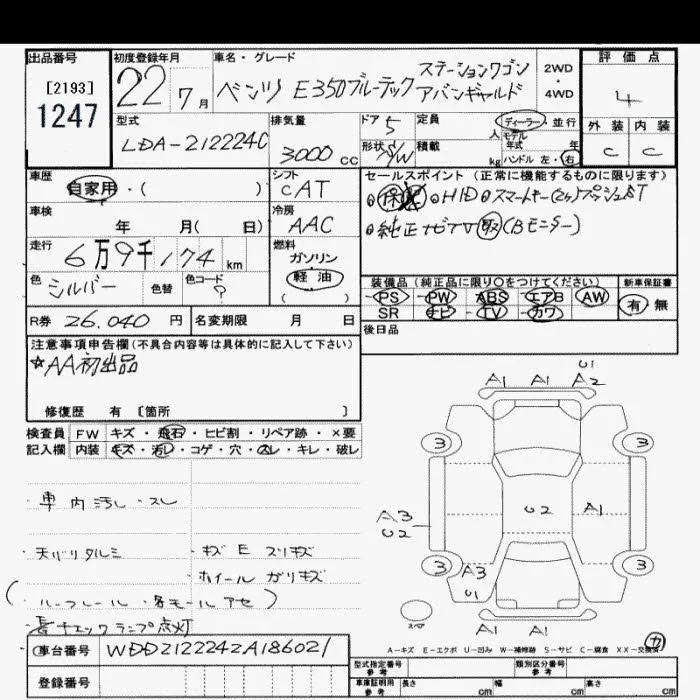 出品番号
[2193]
1247
初度登録年月
22 7 月
車名・グレード
ベンツ E350ブルーテック ステーションワゴン
アバンギャルド
2WD
・
4WD
評価点
4
外装 内装
C C
型式
LDA-212224C
排気量
3000 cc
ドア 5
形状 S/W
定員 人
積載 kg
ディーラー・並行
モデル年式 年
ハンドル 左・右
車歴
自家用・( )
シフト
CAT
車検
年 月( 日)
冷房
AAC
走行
6万9千174 km
燃料
ガソリン
軽油
( )
色
シルバー
色替
色コード
R券 26.040 円
名変期限 月 日
セールスポイント(正常に機能するものに限ります)
HID スマートキー(2ヶ)プッシュST
純正ナビTV (Bモニター)
装備品(純正品に限り○をつけてください)
PS PW ABS エアB AW
SR ナビ TV カワ
新車保証書
有・無
後日品
注意事項申告欄(不具合内容等は具体的に記入して下さい)
☆AA初出品
修復歴 有 [箇所 ]
検査員 FW キズ・飛石・ヒビ割・リペア跡・×要
記入欄 内装 キズ・汚れ・コゲ・穴・スレ・キレ・破レ
・車内汚レ・スレ
・天バリタルミ ・キズ E スリキズ
・ホイール ガリキズ
(・ルーフレール・各モールアセ)
・チェックランプ点灯
U1
A1 A1 A2
3 3
A3
U2
U2
A1
3 3
A3
U1
スペア
A1 A1
カ
A－キズ E－エクボ U－凹み W－補修跡 S－サビ C－腐食 XX－交換済
車台番号 WDD2122242A186021
登録番号
型式指定番号
参考
類別区分番号
参考
車庫証明用
参考
長さ cm 幅 cm 高さ cm